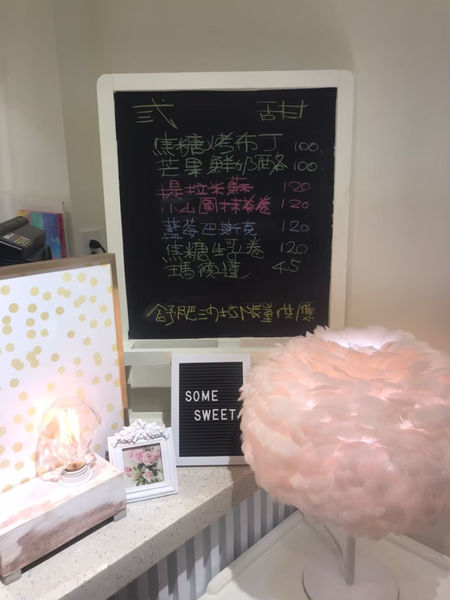 弍 甜
焦糖烤布丁 100.
芒果鮮奶酪 100.
提拉米蘇 120
小山園抹茶卷 120
藍莓巴斯克 120
焦糖生乳卷 120
瑪德蓮 45
舒肥沙拉限量供應
SOME
SWEET